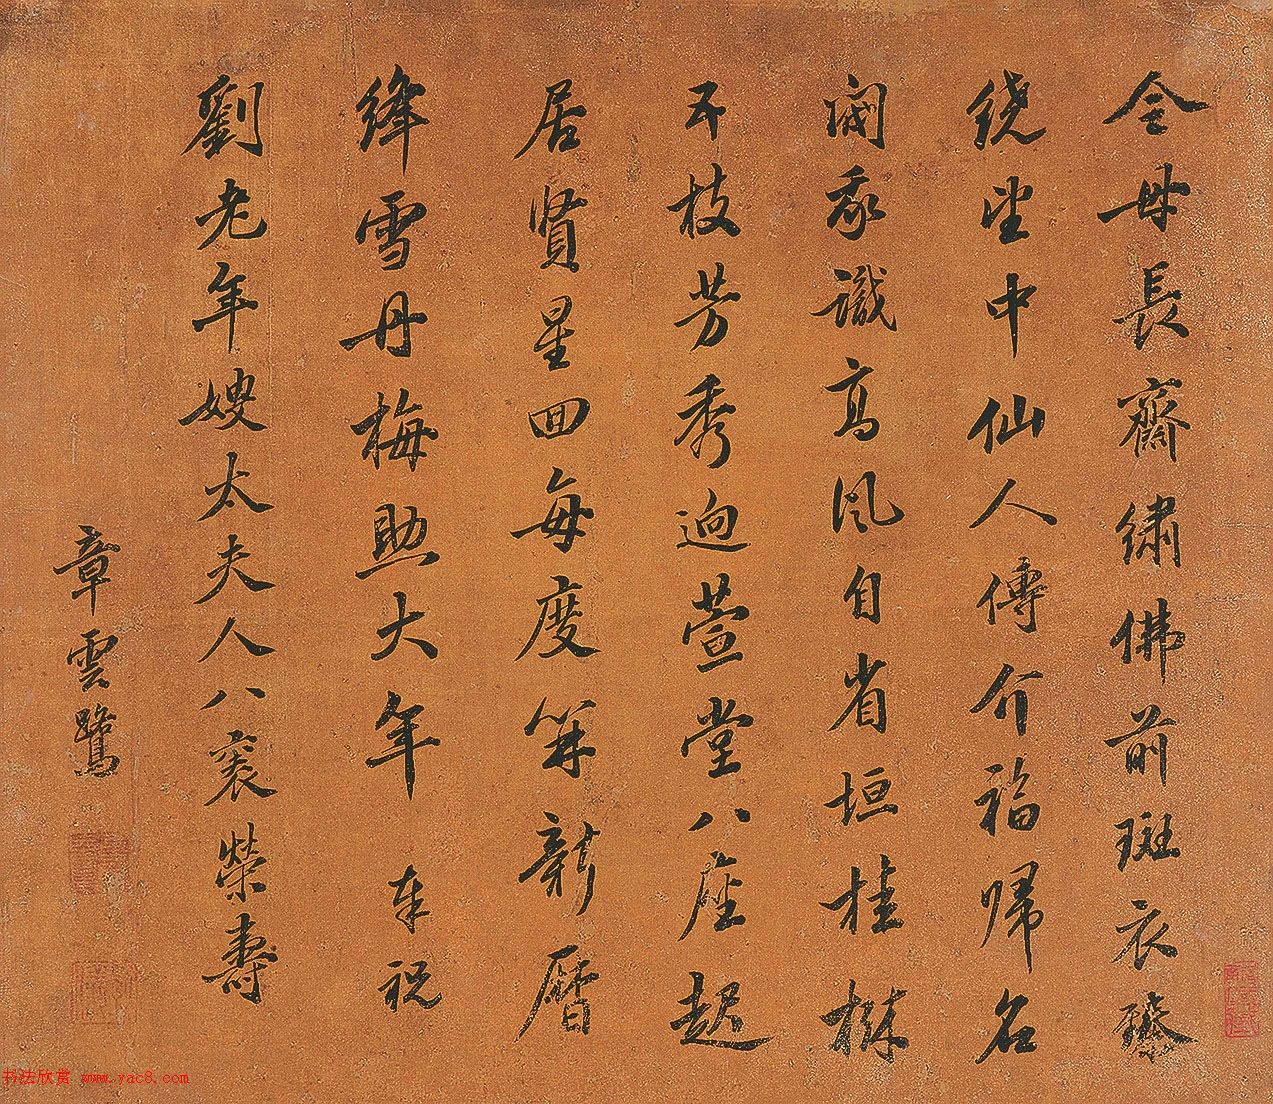 金母長齋繡佛前斑衣璨
繞坐中仙人傳介福歸名
閥我識高風自省垣桂
五枝芳秀迥萱堂八座起
居賢星回每度筭新曆
絳雪丹梅助大年 奉祝
劉老年嫂太夫人八袠榮壽
章雲鷺
书法欣赏 www.yac8.com